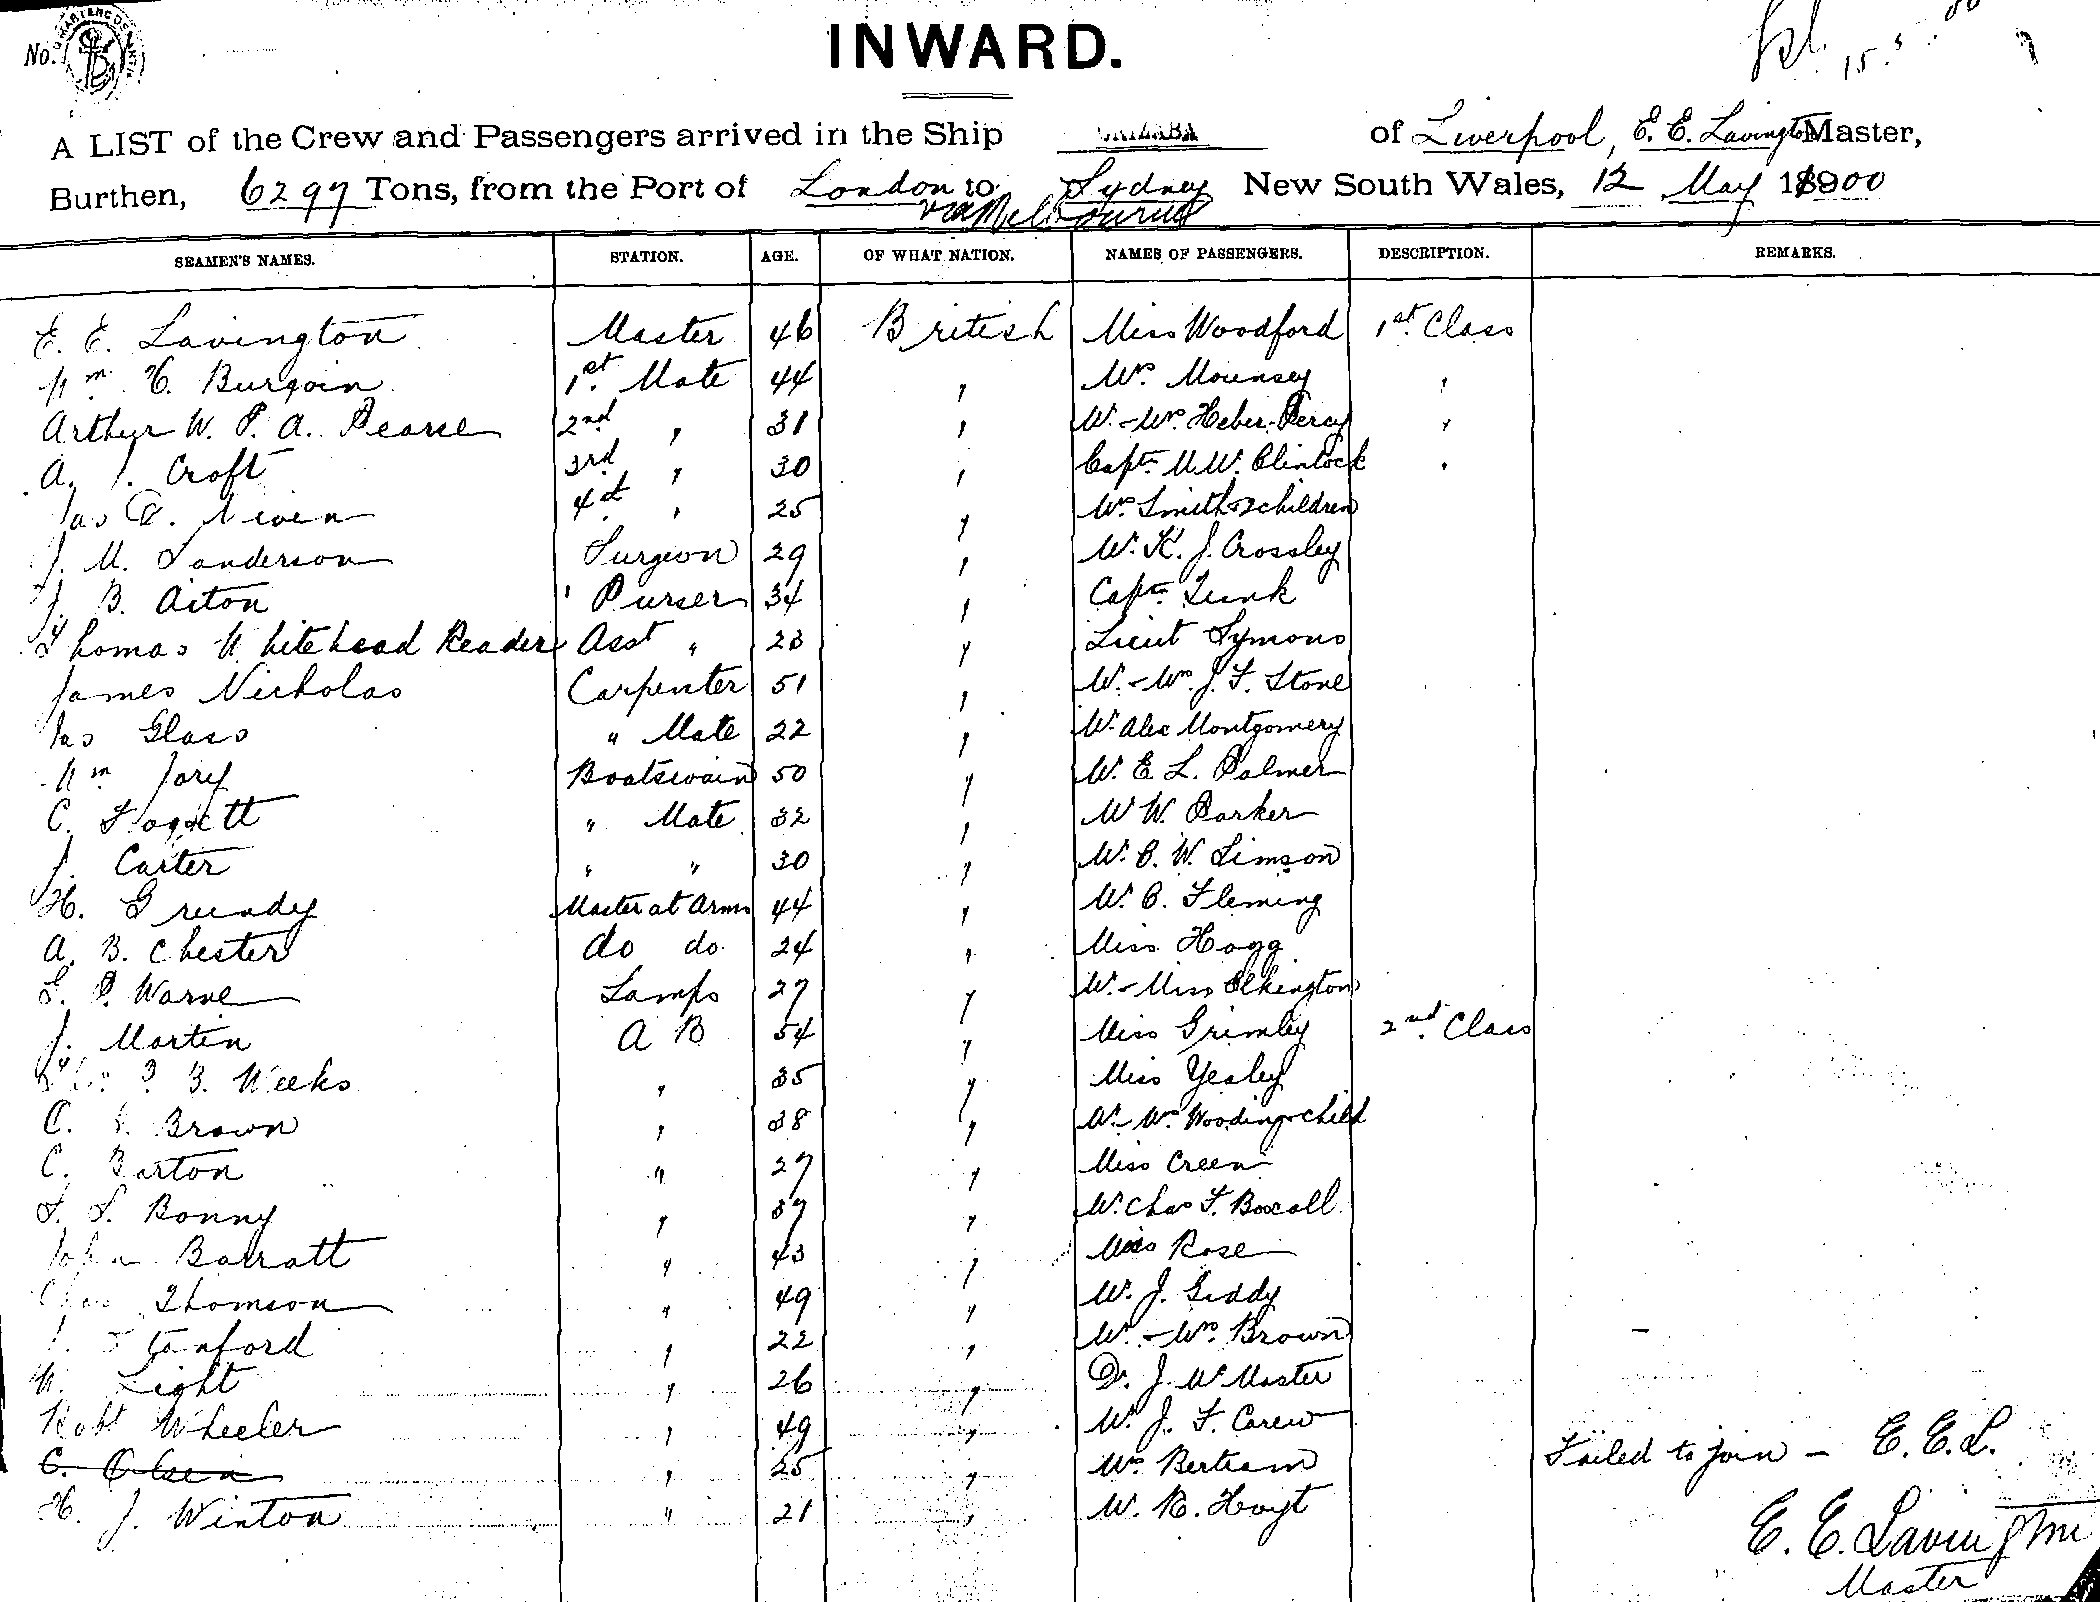 No.
INWARD.
15.5.00
A LIST of the Crew and Passengers arrived in the Ship ORIZABA of Liverpool, E. E. Lavington Master,
Burthen, 6297 Tons, from the Port of London to Sydney New South Wales, 12 May 1900
via Melbourne
SEAMEN'S NAMES. STATION. AGE. OF WHAT NATION. NAMES OF PASSENGERS. DESCRIPTION. REMARKS.
E. E. Lavington Master 46 British Miss Woodford 1st. Class
Wm H. Burgoin 1st. Mate 44 , Mrs Mounsey ,
Arthur W. P. A. Pearse 2nd , 31 , Mr. - Mrs. Heber-Percy ,
A. J. Croft 3rd , 30 , Capt. McClintock ,
Jas Niven 4th , 25 , Mrs Smith & 2 children
J. M. Sanderson Surgeon 29 , Mr. K. J. Crossley
J. B. Aiton Purser 34 , Capt.
Thomas Whitehead Reader Asst " 23 , Lieut Symons
James Nicholas Carpenter 51 , Mr. - Mrs. J. F. Stone
Jas Glass " Mate 22 , Mr Alex Montgomery
Wm Jory Boatswain 50 , Mr. E. L. Palmer
C. " Mate 32 , Mr W. Parker
J. Carter " " 30 , Mr. C. W. Simson
H. Grundy Master at Arms 44 , Mr. C. Fleming
A. B. Chester do do. 24 , Miss Hogg
P. Warne Lamps 27 , Mr. - Miss Elkington
J. Martin A B 54 , Miss Grimley 2nd. Class
B. Weeks , 35 , Miss Yealey
C. Brown , 38 , Mr - Mrs Wooding & child
C. Barton " 27 , Miss Creen
S. Bonny , 37 , Mr. Chas F. Boxall
John Barratt " 43 , Miss Rose
Chas Thomson " 49 , Mr. J. Giddy
Stanford , 22 , Mr. - Mrs. Brown
W. Light , 26 , Dr. J. McMaster
Robt Wheeler , 49 , Mr. J. F. Carew
C. Olsen , 25 , Mrs Bertram Failed to join - E. E. L.
H. J. Winton " 21 , Mr. R. Hoyt
E. E. Lavington
Master